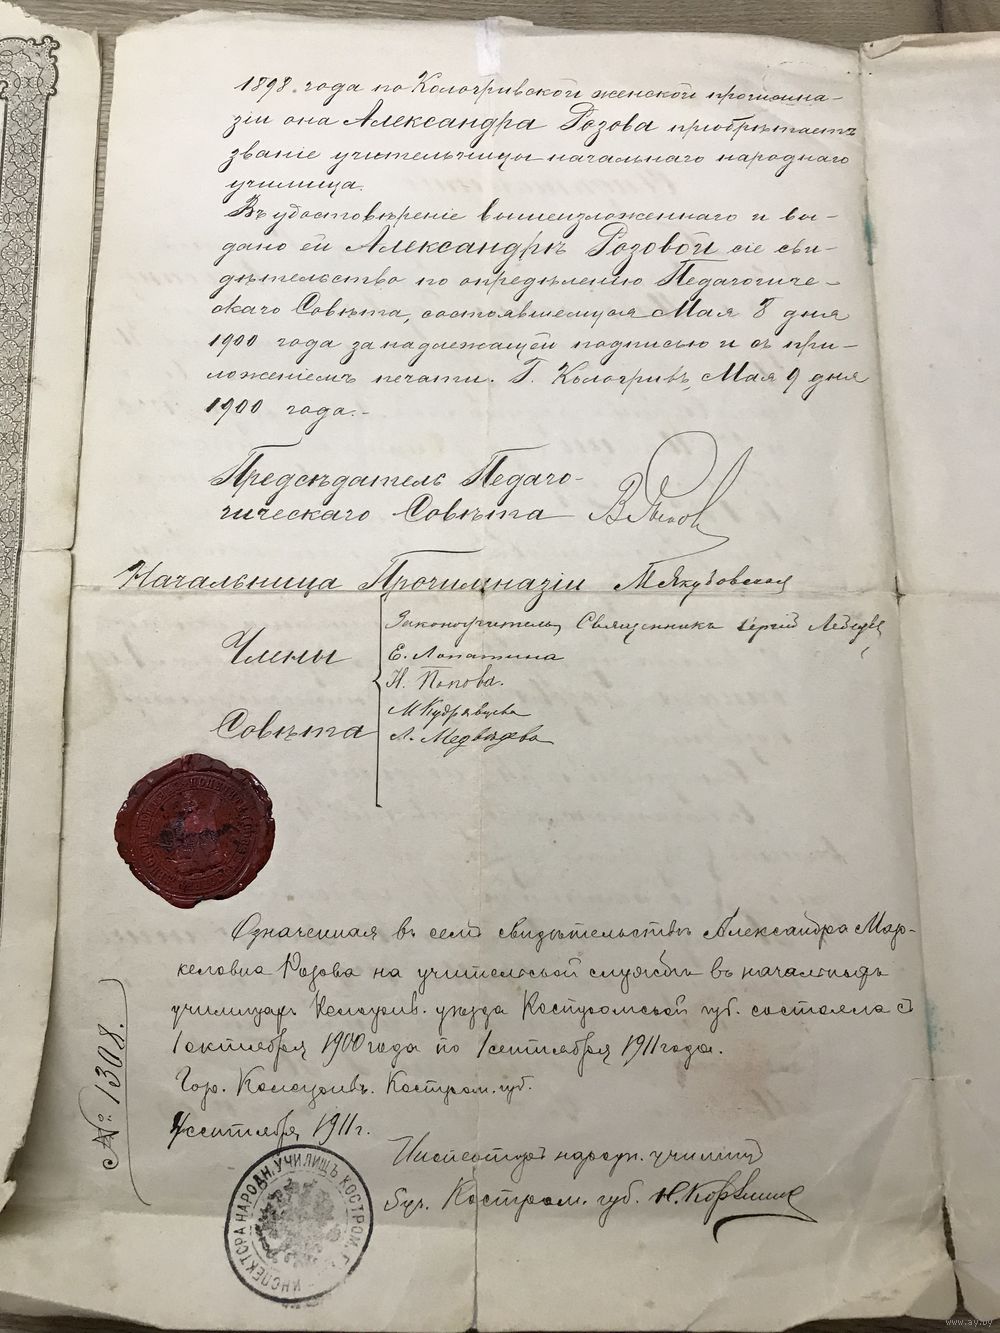 1898. года по Кологривской женской прогимна-
зіи она Александра Розова пріобрѣтаетъ
званіе учительницы начальнаго народнаго
училища.
Въ удостовѣреніе вышеизложеннаго и вы-
дано ей Александрѣ Розовой сіе сви-
дѣтельство по опредѣленію Педагогиче-
скаго Совѣта, состоявшемуся Мая 8 дня
1900 года за надлежащей подписью и съ при-
ложеніемъ печати. Г. Кологривъ, Мая 9 дня
1900 года.-
Предсѣдатель Педаго-
гическаго Совѣта
Начальница Прогимназіи М Якубовская
Члены
Совѣта
Законоучитель, Священникъ Сергій Лебедев
Е. Лопатина
Н. Попова.
М Кудрявцева
Л. Медвѣдева
Означенная въ семъ свидѣтельствѣ Александра Мар-
келовна Розова на учительской службѣ въ начальныхъ
училищахъ Кологрив. уѣзда Костромской губ. состояла съ
1 октября 1900 года по 1 сентября 1911 года.
Гор. Кологривъ. Костром. губ.
сентября 1911 г.
№ 1308.
Инспекторъ народн. училищъ
5 уч. Костром. губ.
ИНСПЕКТОРА НАРОДН. УЧИЛИЩЪ КОСТРОМ. Г.
www.ay.by